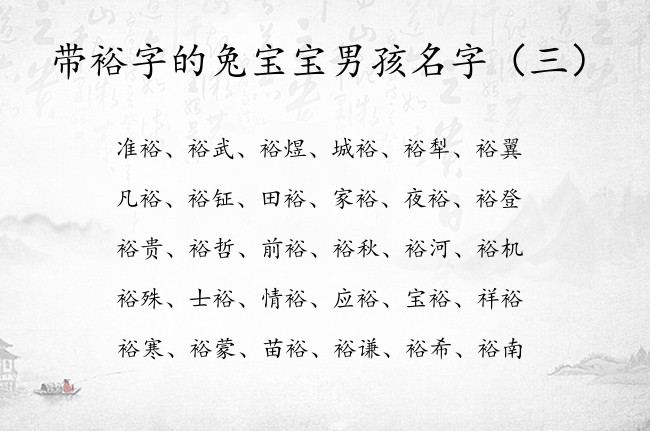 带裕字的兔宝宝男孩名字（三）
准裕、裕武、裕煜、城裕、裕犁、裕翼
凡裕、裕钲、田裕、家裕、夜裕、裕登
裕贵、裕哲、前裕、裕秋、裕河、裕机
裕殊、士裕、情裕、应裕、宝裕、祥裕
裕寒、裕蒙、苗裕、裕谦、裕希、裕南